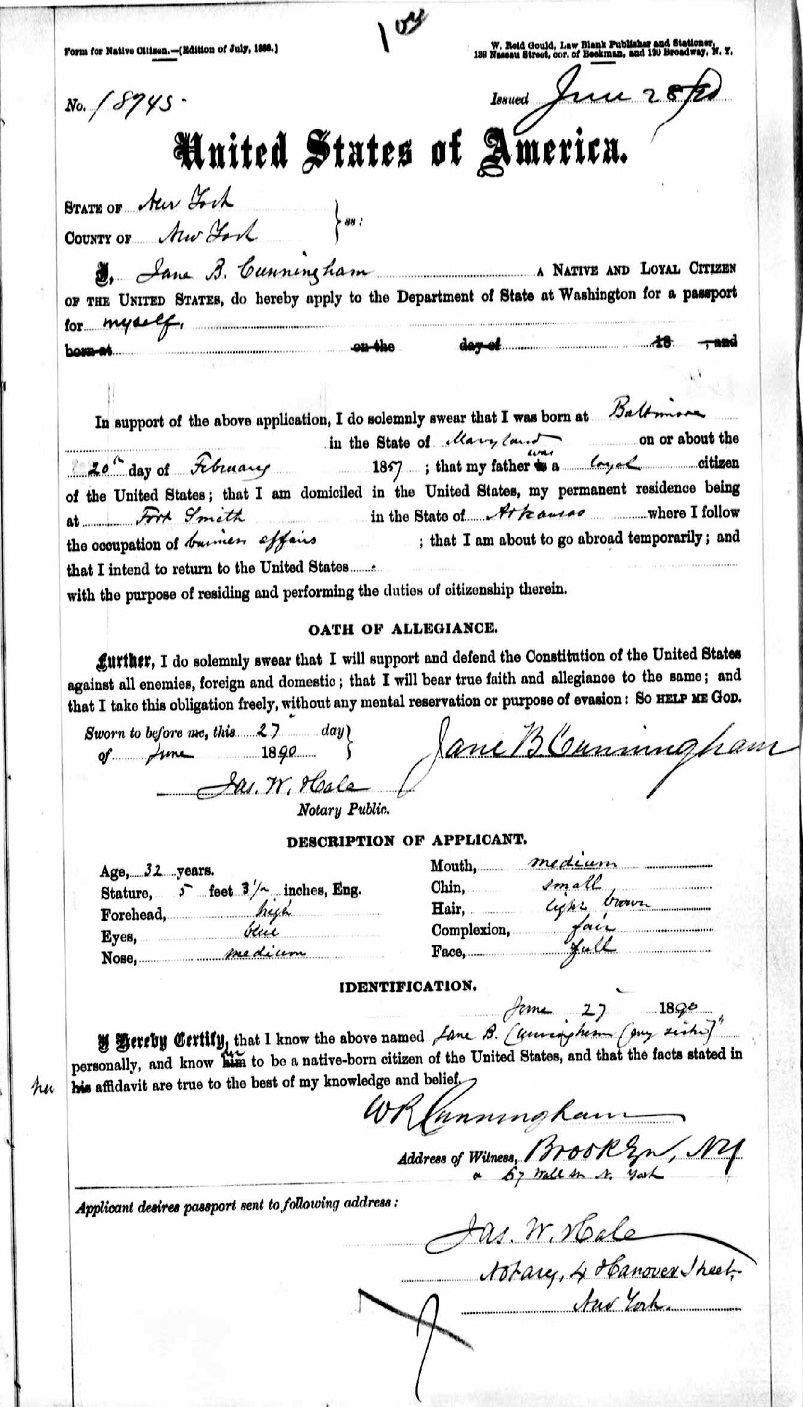 1 oy
Form for Native Citizen.—(Edition of July, 1888.)
W. Reid Gould, Law Blank Publisher and Stationer,
139 Nassau Street, cor. of Beekman, and 120 Broadway, N. Y.
No. 18745
Issued June 28/90
United States of America.
STATE OF New York
COUNTY OF New York } ss:
I, Jane B. Cunningham A NATIVE AND LOYAL CITIZEN
OF THE UNITED STATES, do hereby apply to the Department of State at Washington for a passport
for myself.
born at on the day of 18 , and
In support of the above application, I do solemnly swear that I was born at Baltimore
in the State of Maryland on or about the
20th day of February 1857 ; that my father is was a loyal citizen
of the United States; that I am domiciled in the United States, my permanent residence being
at Fort Smith in the State of Arkansas where I follow
the occupation of business affairs ; that I am about to go abroad temporarily; and
that I intend to return to the United States
with the purpose of residing and performing the duties of citizenship therein.
OATH OF ALLEGIANCE.
Further, I do solemnly swear that I will support and defend the Constitution of the United States
against all enemies, foreign and domestic; that I will bear true faith and allegiance to the same; and
that I take this obligation freely, without any mental reservation or purpose of evasion: SO HELP ME GOD.
Sworn to before me, this 27 day
of June 1890
Jane B Cunningham
Jas. W. Hale
Notary Public.
DESCRIPTION OF APPLICANT.
Age, 32 years.
Stature, 5 feet 3 1/2 inches, Eng.
Forehead, high
Eyes, blue
Nose, medium
Mouth, medium
Chin, small
Hair, light brown
Complexion, fair
Face, full
IDENTIFICATION.
June 27 1890
I Hereby Certify, that I know the above named Jane B. Cunningham (my sister)
personally, and know him her to be a native-born citizen of the United States, and that the facts stated in
her his affidavit are true to the best of my knowledge and belief.
WR Cunningham
Address of Witness, Brooklyn, NY
or 67 Wall St N. York
Applicant desires passport sent to following address:
Jas. W. Hale
Notary, 4 Hanover Street,
New York.